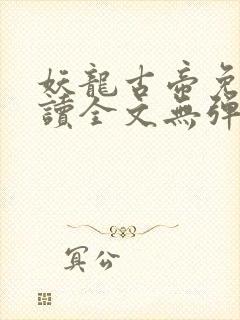 妖龍古帝免
讀全文無彈
冥公